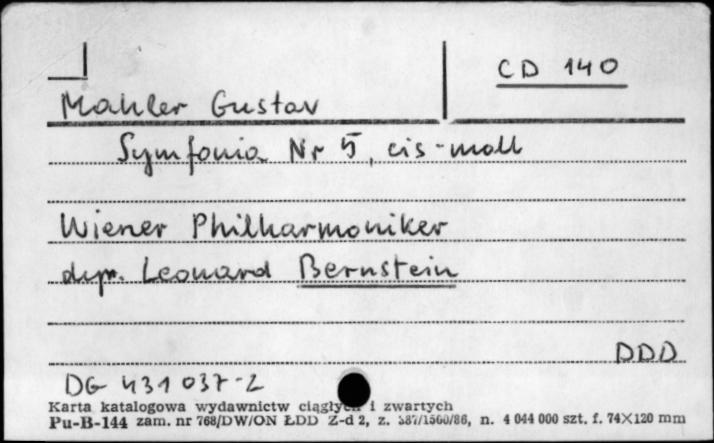 CD 140
Mahler Gustav
Symfonia Nr 5, cis-moll
Wiener Philharmoniker
dyr. Leonard Bernstein
DDD
DG 431 037-2
Karta katalogowa wydawnictw ciągłych i zwartych
Pu-B-144 zam. nr 768/DW/ON ŁDD Z-d 2, z. 587/1500/86, n. 4 044 000 szt. f. 74×120 mm